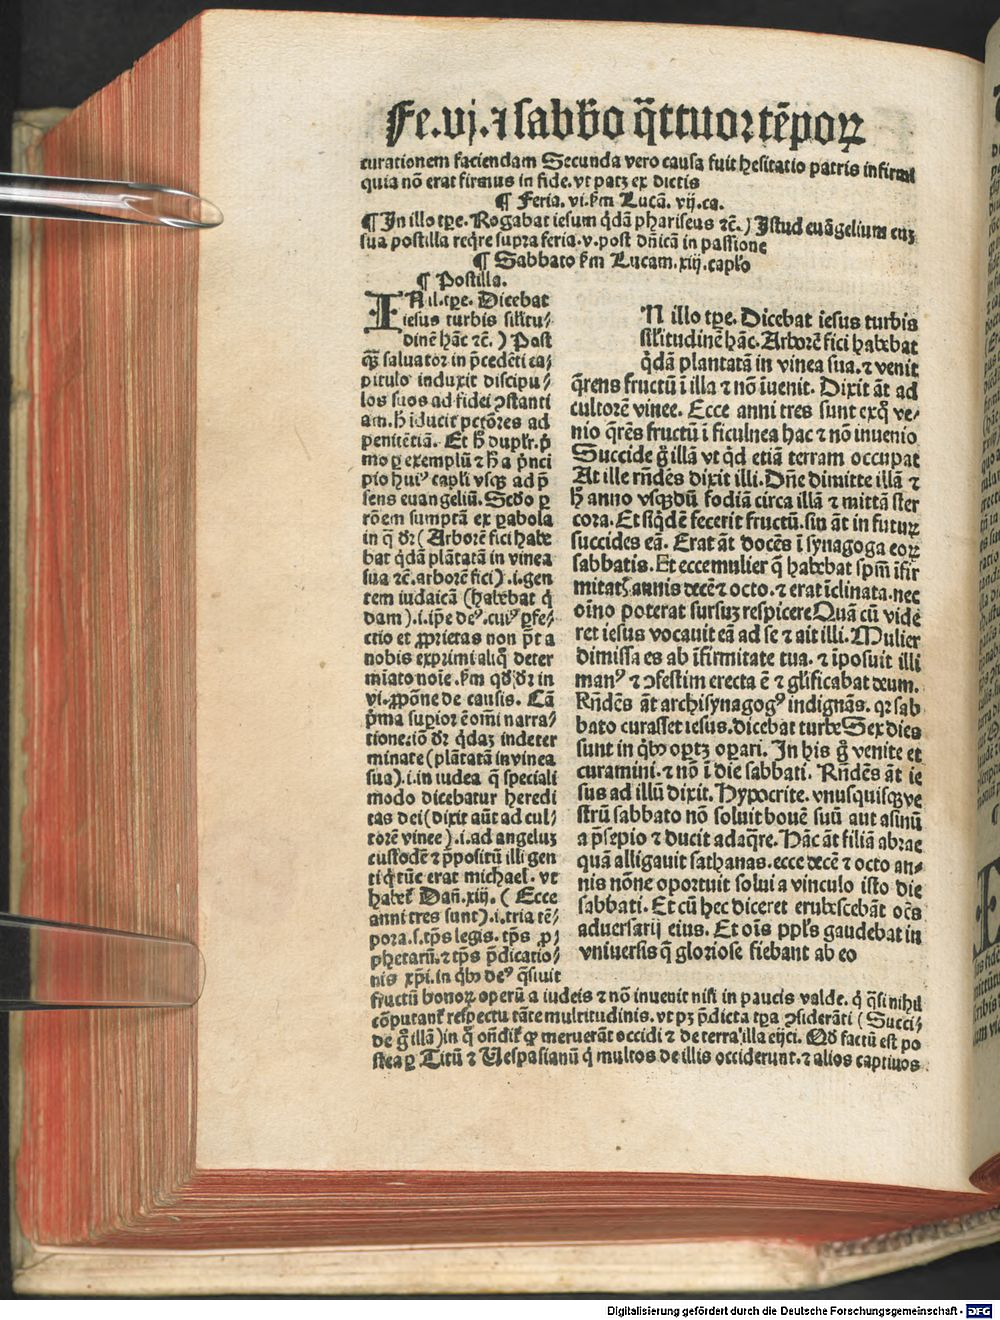 Fe.vj.⁊ sabb̄o q̄ttuor tēpoꝝ
curationem faciendam Secunda vero causa fuit hesitatio patris infirmi
quia nō erat firmus in fide. vt patꝫ ex dictis
¶ Feria. vi. s̄m Lucā. vij. ca.
¶ In illo tꝑe. Rogabat iesum q̇dā phariseus ⁊c̄.) Istud euāgelium cuꝫ
sua postilla reqͥre supra feria. v. post dn̄icā in passione
¶ Sabbato s̄m Lucam. xiij. capl̓o
¶ Postilla.
IN il. tꝑe. Dicebat
iesus turbis sil̓itu⸗
dinē hāc ⁊c̄.) Post
qꝫ̄ saluator in p̄cedēti ca⸗
pitulo induxit discipu⸗
los suos ad fidei ꝯstanti
am. h̄ iducit pctōres ad
penitētiā. Et h̄ duplr̓. p̄
mo ꝑ exemplū ⁊ h̄ a pͥnci
pio huiꝰ capl̓i vsqꝫ ad p̄
sens euangeliū. Scd̓o ꝑ
rōem sumptā ex ꝑabola
in q̄ dr̓ (Arborē fici habe
bat q̇dā plātatā in vinea
sua ⁊c̄. arborē fici) .i. gen
tem iudaicā (habebat q̇
dam) .i. ip̄e deꝰ. cuiꝰ ꝑfe⸗
ctio et ꝓprietas non pt̄ a
nobis exprimi aliq̊ deter
miato noīe. s̄m qd̓ dr̓ in
vi. ꝓpōne de causis. Cā
pͥma supior ē om̄i narra⸗
tione. iō dr̓ q̇daꝫ indeter
minate (plātatā in vinea
sua) .i. in iudea q̄ speciali
modo dicebatur heredi
tas dei (dixit aūt ad cul⸗
torē vinee) .i. ad angeluꝫ
custodē ⁊ p̄positū illi gen
ti q̇ tūc erat michael. vt
habet̓ Dan̄. xij. ( Ecce
anni tres sunt) .i. tria tē⸗
pora. s. tp̄s legis. tp̄s ꝓ⸗
phetarū. ⁊ tp̄s p̄dicatio⸗
nis xp̄i. in qͥbꝰ deꝰ q̄siuit
N illo tꝑe. Dicebat iesus turbis
sil̓itudinē hāc. Arborē fici habebat
q̇dā plantatā in vinea sua. ⁊ venit
q̄rens fructū ī illa ⁊ nō īuenit. Dixit āt ad
cultorē vinee. Ecce anni tres sunt exq̊ ve⸗
nio q̄rēs fructū ī ficulnea hac ⁊ nō inuenio
Succide g̊ illā vt qͥd etiā terram occupat
At ille rn̄dēs dixit illi. Dn̄e dimitte illā ⁊
h̄ anno vsqꝫdū fodiā circa illā ⁊ mittā ster
cora. Et siqͥdē fecerit fructū. sin āt in futuꝝ
succides eā. Erat āt docēs ī synagoga eoꝝ
sabbatis. Et ecce mulier q̄ habebat sp̄m īfir
mitatꝭ annis decē ⁊ octo. ⁊ erat īclinata. nec
oīno poterat sursuꝫ respicere Quā cū vide
ret iesus vocauit eā ad se ⁊ ait illi. Mulier
dimissa es ab īfirmitate tua. ⁊ īposuit illi
manꝰ ⁊ ꝯfestim erecta ē ⁊ gl̓ificabat deum.
Rn̄dēs āt archisynagogꝰ indignās. qꝛ sab
bato curasset iesus. dicebat turbe Sex dies
sunt in qͥbꝰ oꝑtꝫ oꝑari. In his g̊ venite et
curamini. ⁊ nō ī die sabbati. Rn̄dēs āt ie
sus ad illū dixit. Hypocrite. vnusquisqꝫ ve
strū sabbato nō soluit bouē suū aut asinū
a p̄sepio ⁊ ducit adaq̄re. Hāc āt filiā abrae
quā alligauit sathanas. ecce decē ⁊ octo an⸗
nis nōne oportuit solui a vinculo isto die
sabbati. Et cū hec diceret erubescebāt oēs
aduersarij eius. Et oīs ppl̓s gaudebat in
vniuersis q̄ gloriose fiebant ab eo
fructū bonoꝝ operū a iudeis ⁊ nō inuenit nisi in paucis valde. q̇ q̄si nihil
cōputant̓ respectu tāte multitudinis. vt pꝫ p̄dicta tꝑa ꝯsiderāti (Succi⸗
de g̊ illā) in q̊ on̄dit̓ ꝙ meruerāt occidi ⁊ de terra illa eijci. Qd̓ factū est po
stea ꝑ Titū ⁊ Vespasianū q̇ multos de illis occiderunt. ⁊ alios captiuos
Digitalisierung gefördert durch die Deutsche Forschungsgemeinschaft - DFG